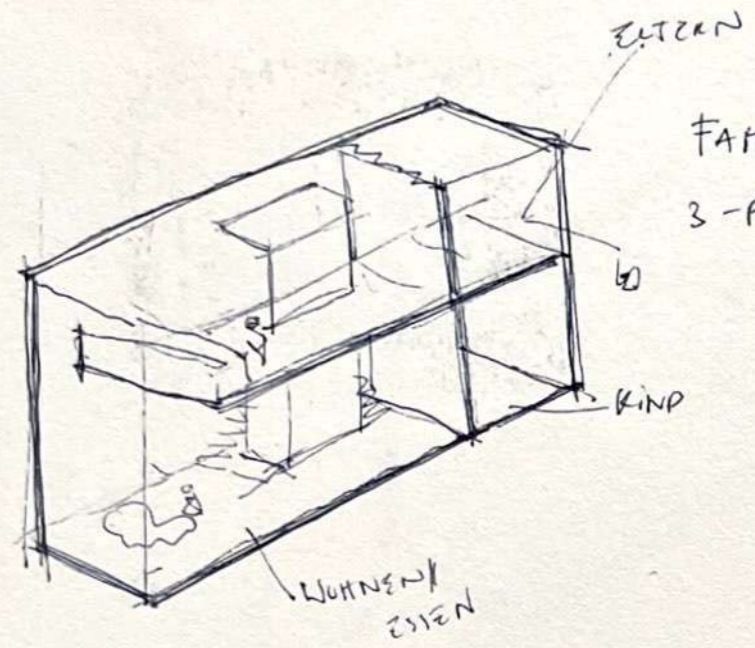 ELTERN
FAM
3-P
KIND
WOHNEN/
ESSEN